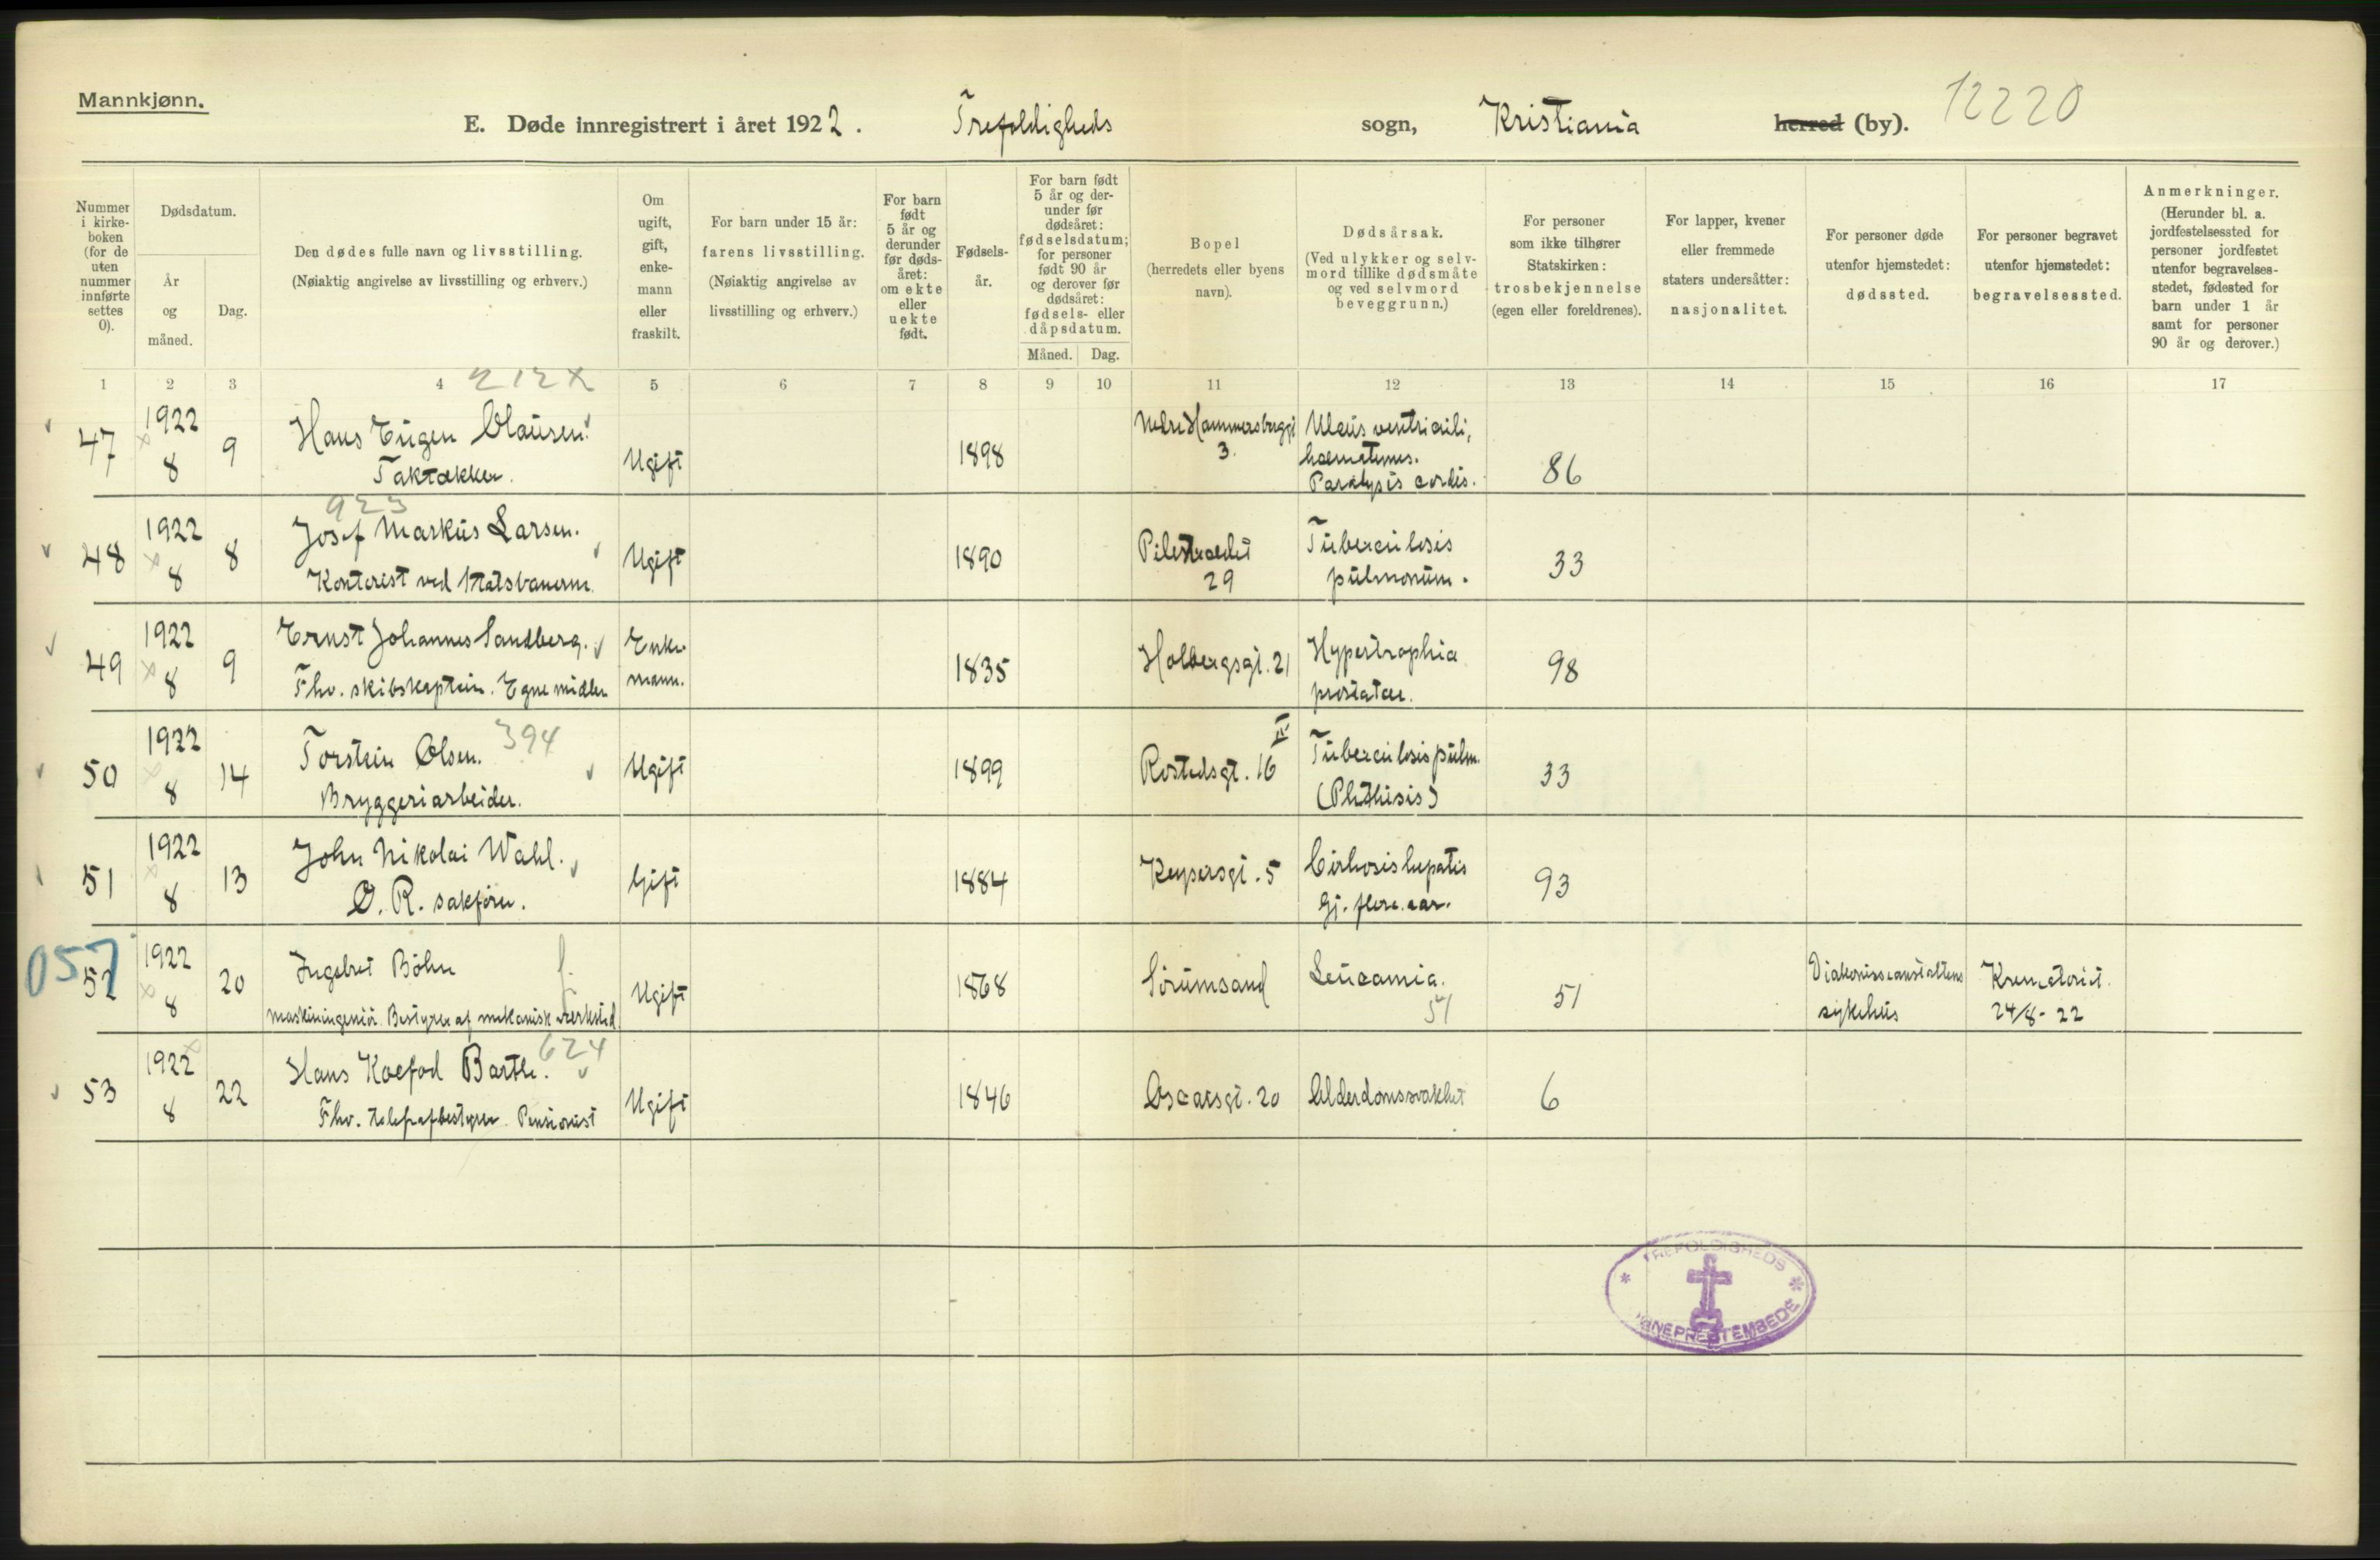 Mannkjønn.
E. Døde innregistrert i året 1922. Trefoldigheds sogn, Kristiania herred (by). 12220
Nummer i kirke-boken (for de uten nummer innførte settes 0).
Dødsdatum.
År og måned.
Dag.
Den dødes fulle navn og livsstilling.
(Nøiaktig angivelse av livsstilling og erhverv.)
Om ugift, gift, enke-mann eller fraskilt.
For barn under 15 år:
farens livsstilling.
(Nøiaktig angivelse av livsstilling og erhverv.)
For barn født 5 år og derunder før døds-året: om ekte eller uekte født.
Fødsels-år.
For barn født 5 år og der-under før dødsåret: fødselsdatum; for personer født 90 år og derover før dødsåret: fødsels- eller dåpsdatum.
Måned. Dag.
Bopel
(herredets eller byens navn).
Dødsårsak.
(Ved ulykker og selv-mord tillike dødsmåte og ved selvmord beveggrunn.)
For personer som ikke tilhører Statskirken: trosbekjennelse (egen eller foreldrenes).
For lapper, kvener eller fremmede staters undersåtter: nasjonalitet.
For personer døde utenfor hjemstedet: dødssted.
For personer begravet utenfor hjemstedet: begravelsessted.
Anmerkninger.
(Herunder bl. a. jordfestelsessted for personer jordfestet utenfor begravelses-stedet, fødested for barn under 1 år samt for personer 90 år og derover.)
1 2 3 4 5 6 7 8 9 10 11 12 13 14 15 16 17
212 x
47 1922 8 9 Hans Eugen Clausen. Taktækker. Ugift 1898 Nedre Hammersborggt 3. Ulcus ventriculi, haematemes. Paralysis cordis. 86
923
48 1922 8 8 Josef Markus Larsen. Kontorist ved Statsbanerne. Ugift 1890 Pilestrædet 29 Tuberculosis pulmonum. 33
49 1922 8 9 Ernst Johannes Sandberg. Fhv. skibskaptein. Egne midler Enke-mann. 1835 Holbergsgt. 21 Hypertrophia prostatae. 98
50 1922 8 14 Torstein Olsen. 394 Bryggeriarbeider. Ugift 1899 Rostedsgt. 16 IV Tuberculosis pulm. (Phthisis) 33
51 1922 8 13 John Nikolai Wahl. O. R. sakfører. Gift 1884 Keysersgt. 5 Cirhosis hepatis Gj. flere aar. 93
057
52 1922 8 20 Ingebret Böhn maskiningeniør. Bestyrer af mekanisk verksted Ugift 1868 Sørumsand Leucamia. 51 51 Diakonisseanstaltens sykehus Krematoriet. 24/8-22
53 1922 8 22 Hans Koefod Barthe. 624 Fhv. telegrafbestyrer. Pensionist Ugift 1846 Oscarsgt. 20 Alderdomssvakhet 6
TREFOLDIGHEDS
SOGNEPRESTEMBEDE